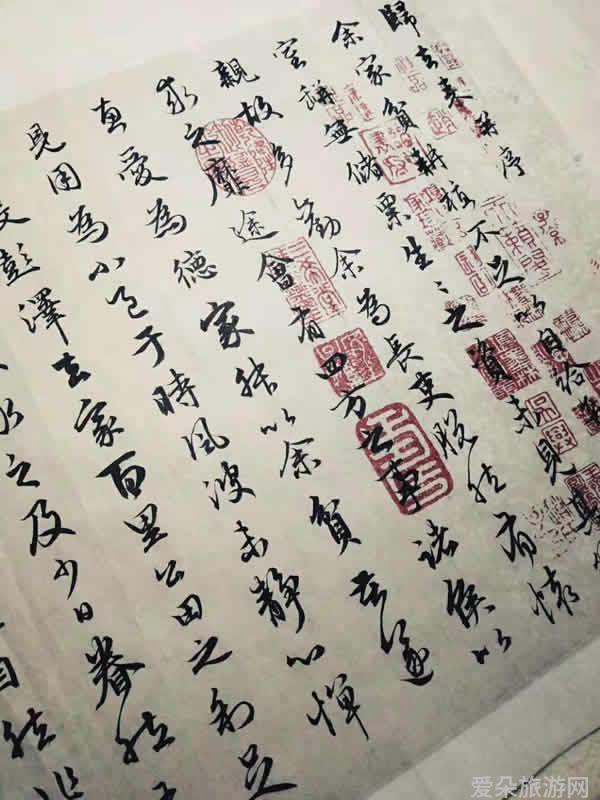 歸去来并序
余家貧耕植不足以自給
室瓶無儲粟生々之資未見其
親故多勸余為長吏脫然有懷
求之靡途會有四方之事諸侯以
惠愛為德家叔以余貧苦遂
見用為小邑于時風波未靜心憚
役彭澤去家百里公田之利足
求之及少日眷然
自然非
爱朵旅游网